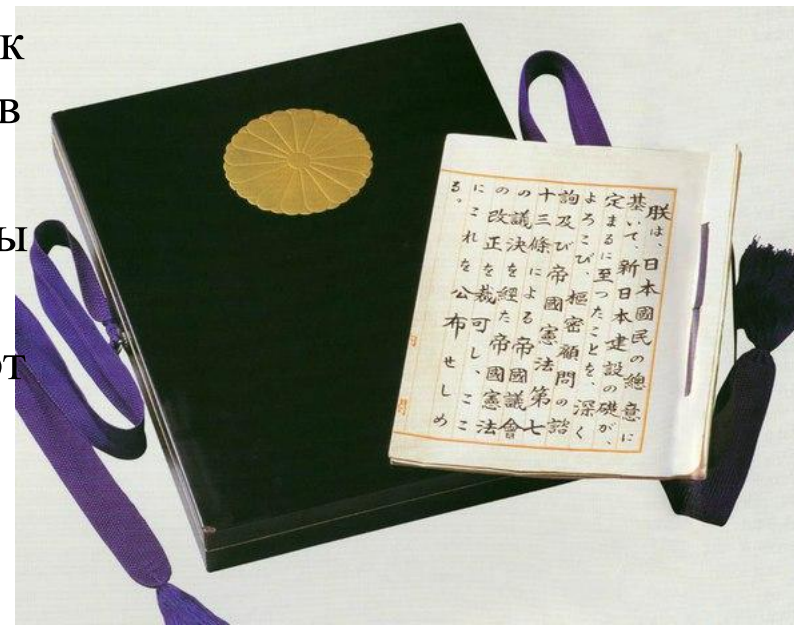 к
в
ы
от
朕は、日本國民の總意に
基いて、新日本建設の礎が、
定まるに至つたことを、深く
よろこび、樞密顧問の諮
詢及び帝國憲法第七
十三條による帝國議會
の議決を經た帝國憲法
の改正を裁可し、ここ
にこれを公布せしめ
る。